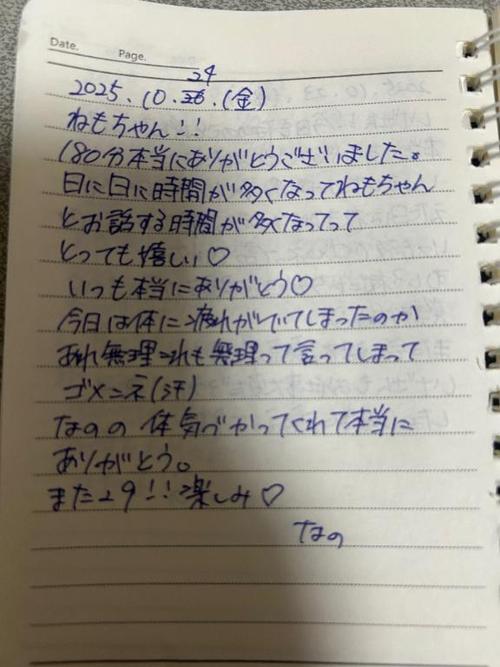 Date.
Page.
24
2025.10.26.(金)
ねもちゃん!!
180分本当にありがとうございました。
日に日に時間が多くなってねもちゃん
とお話する時間が多くなってって
とっても嬉しい♡
いつも本当にありがとう♡
今日は体に疲れがでてしまったのか
あれ無理これも無理って言ってしまって
ゴメンネ(汗)
なのの体気づかってくれて本当に
ありがとう。
また29!!楽しみ♡
なの